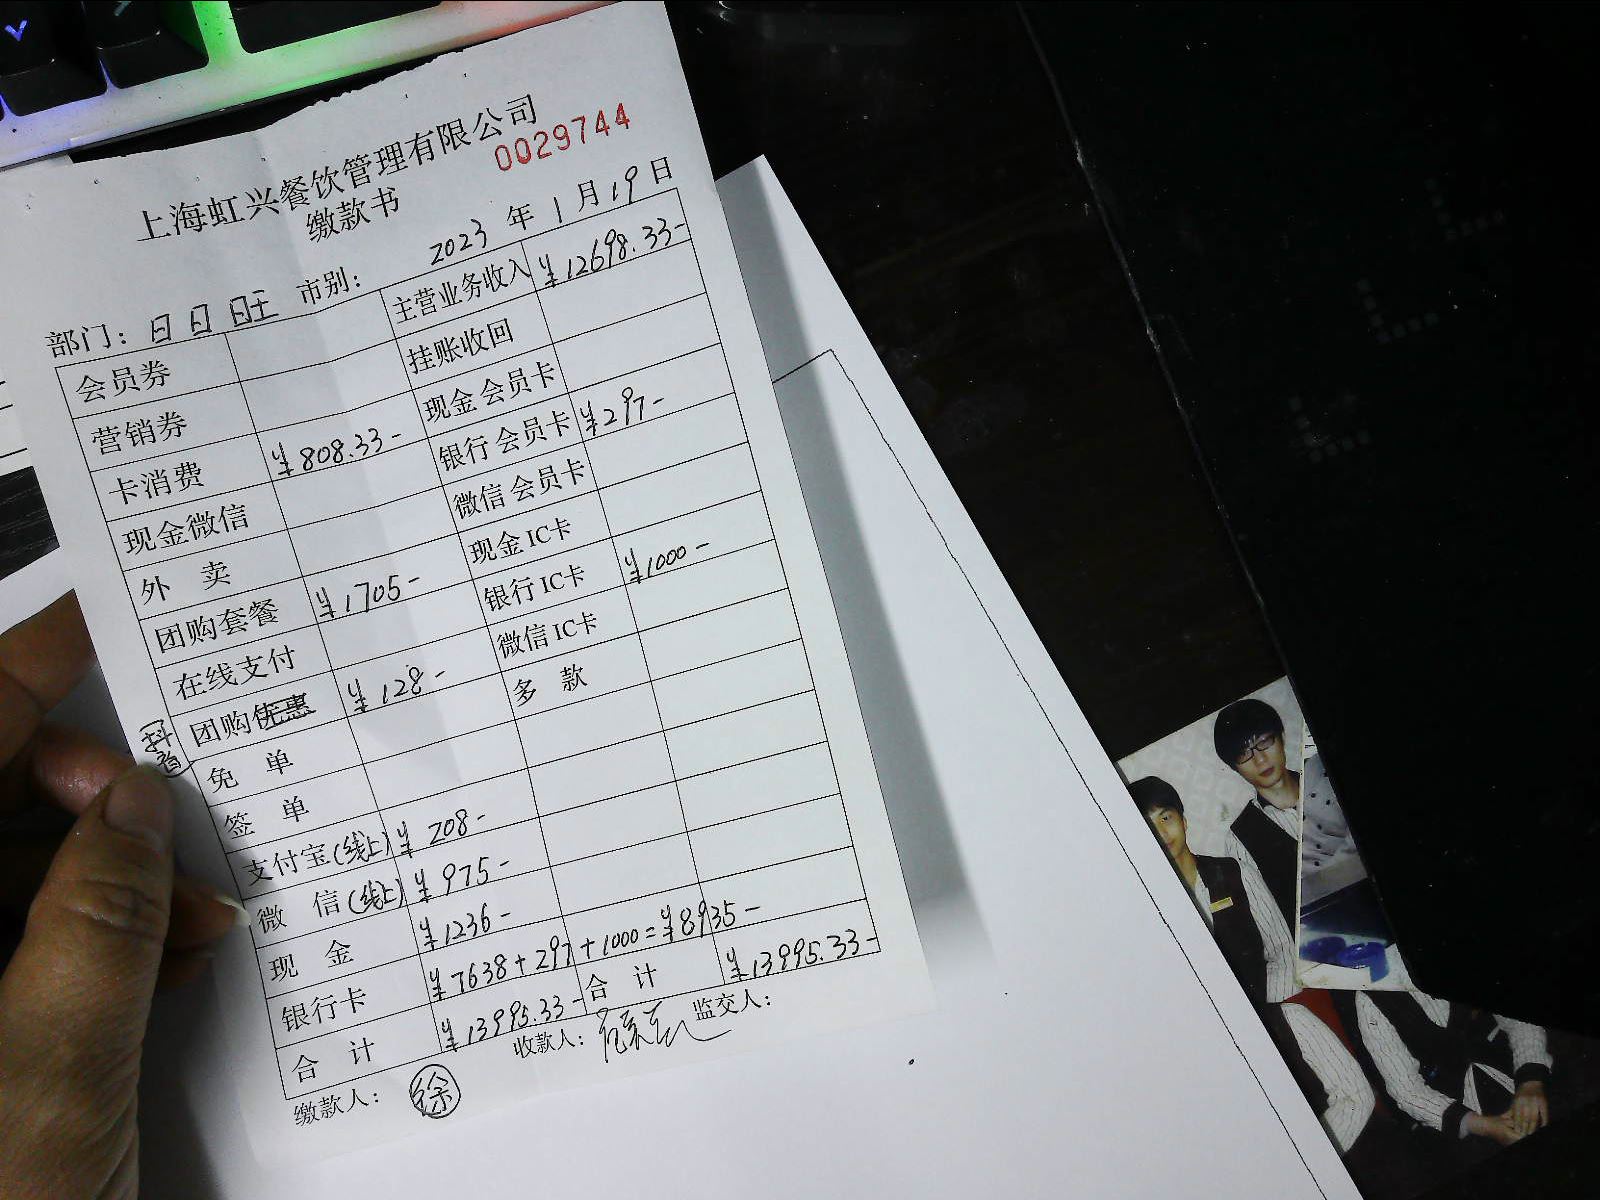 上海虹兴餐饮管理有限公司
缴款书
0029744
部门：日日旺 市别： 2023 年 1 月 19 日
会员券 主营业务收入 ¥12698.33-
营销券 挂账收回
卡消费 ¥808.33- 现金会员卡
现金微信 银行会员卡 ¥297-
外 卖 微信会员卡
团购套餐 ¥1705- 现金IC卡
在线支付 银行IC卡 ¥1000-
抖音 团购优惠 ¥128- 微信IC卡
免 单 多 款
签 单
支付宝(线上) ¥208-
微 信(线上) ¥975-
现 金 ¥1236-
银行卡 ¥7638+297+1000=¥8935-
合 计 ¥13995.33- 合 计 ¥13995.33-
缴款人： 徐 收款人： 监交人：